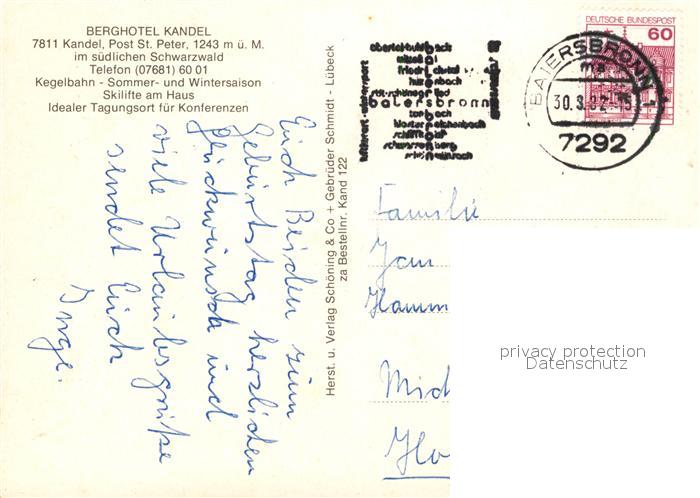 BERGHOTEL KANDEL
7811 Kandel, Post St. Peter, 1243 m ü. M.
im südlichen Schwarzwald
Telefon (07681) 60 01
Kegelbahn - Sommer- und Wintersaison
Skilifte am Haus
Idealer Tagungsort für Konferenzen
Euch Beiden zum
Geburtstag herzlichen
Glückwunsch und
viele Urlaubsgrüße
sendet Euch
Inge.
Herst. u. Verlag Schöning & Co + Gebrüder Schmidt - Lübeck
za Bestellnr. Kand 122
obertal-buhlbach
mitteltal
friedrichstal
huzenbach
röt-schönegründ
baiersbronn
tonbach
klosterreichenbach
schwarzenberg
schönmünzach
DEUTSCHE BUNDESPOST
60
BAIERSBRONN 1
30.3.82-15
7292
Familie
Jan
Hamm
Mich
Ho
privacy protection
Datenschutz